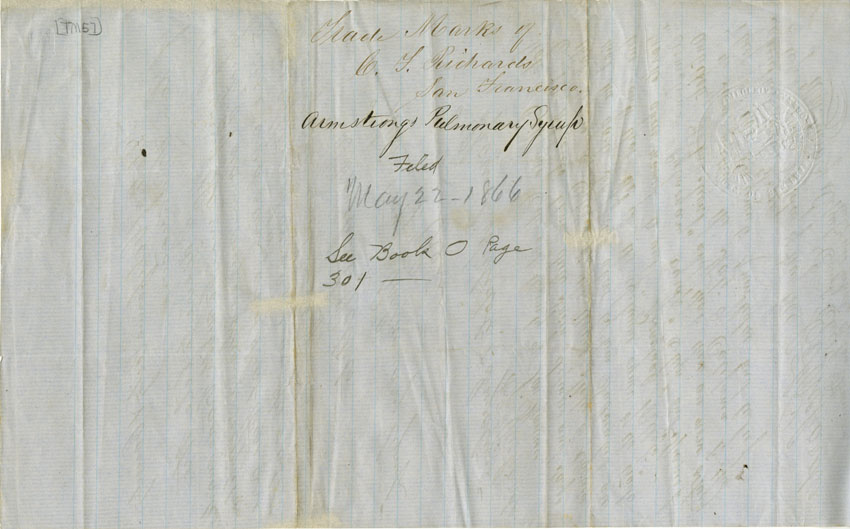 [TM57]
Trade Marks of
C. F. Richards
San Francisco.
Armstrongs Pulmonary Syrup
Filed
May 22-1866
See Book O Page
301 —